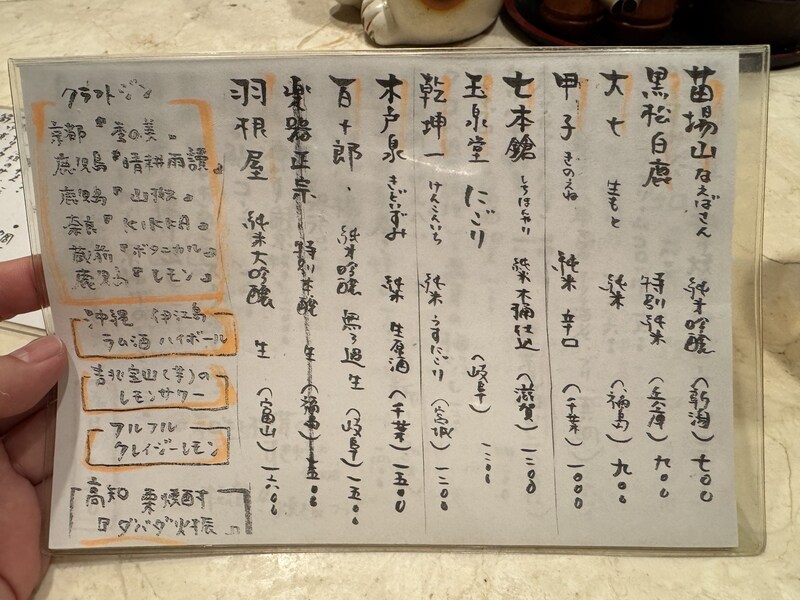 苗場山 なえばさん 純米吟醸 (新潟) 七00
黒松白鹿 特別純米 (兵庫) 九00
大七 生もと 純米 (福島) 九00
甲子 きのえね 純米 辛口 (千葉) 一000
七本鎗 しちほんやり 純米 木桶仕込 (滋賀) 一二00
玉泉堂 にごり (岐阜) 一二00
乾坤一 けんこんいち 純米 うすにごり (宮城) 一二00
木戸泉 きどいずみ 純米 生原酒 (千葉) 一五00
百十郎、純米吟醸 無ろ過生 (岐阜) 一五00
楽器正宗 特別本醸 生 (福島) 一五00
羽根屋 純米大吟醸 生 (富山) 一六00
クラフトジン
京都『季の美』
鹿児島『晴耕雨讀』
鹿児島『山椒』
奈良『KIKKA』
蔵前『ボタニカル』
鹿児島『レモン』
沖縄 伊江島
ラム酒ハイボール
宝山(芋)の
レモンサワー
アルフル
クレイジーレモン
高知 栗焼酎
『ダバダ火振』